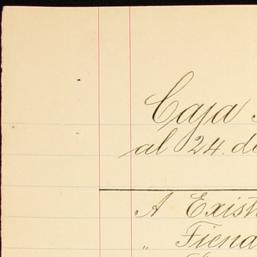 Caja
al 24. de
A Exist
„ Fiend